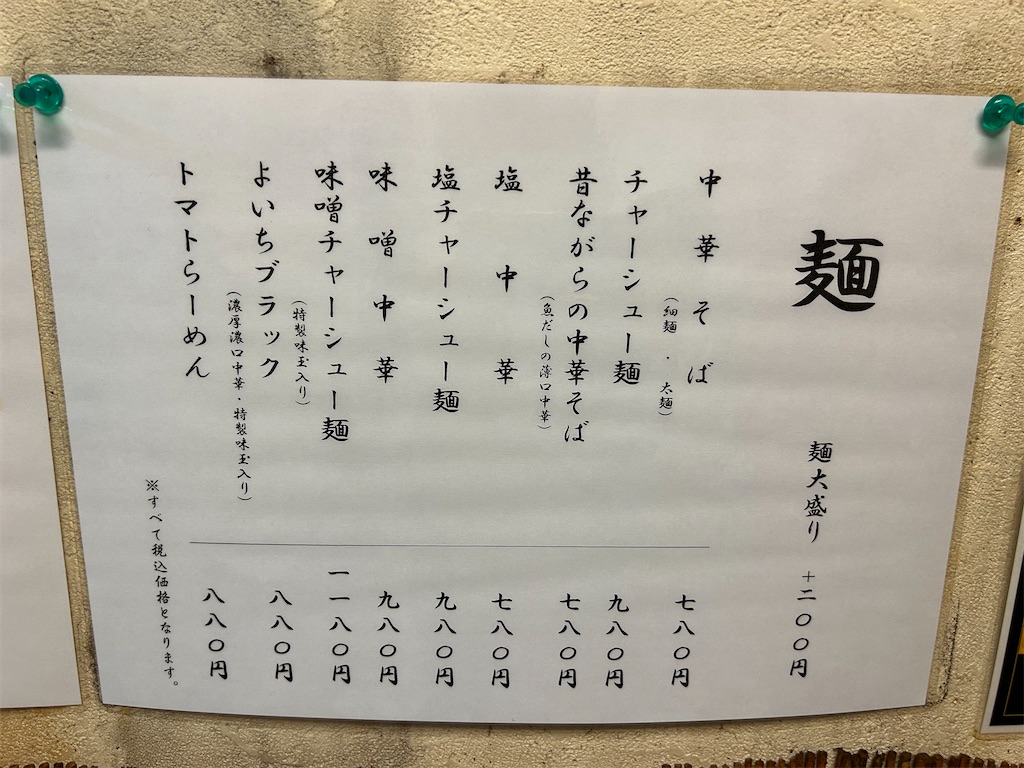 麺
麺大盛り +二〇〇円
中華そば
(細麺・太麺)
七八〇円
チャーシュー麺
九八〇円
昔ながらの中華そば
(魚だしの薄口中華)
七八〇円
塩中華
七八〇円
塩チャーシュー麺
九八〇円
味噌中華
九八〇円
味噌チャーシュー麺
(特製味玉入り)
一一八〇円
よいちブラック
(濃厚濃口中華・特製味玉入り)
八八〇円
トマトらーめん
八八〇円
※すべて税込価格となります。